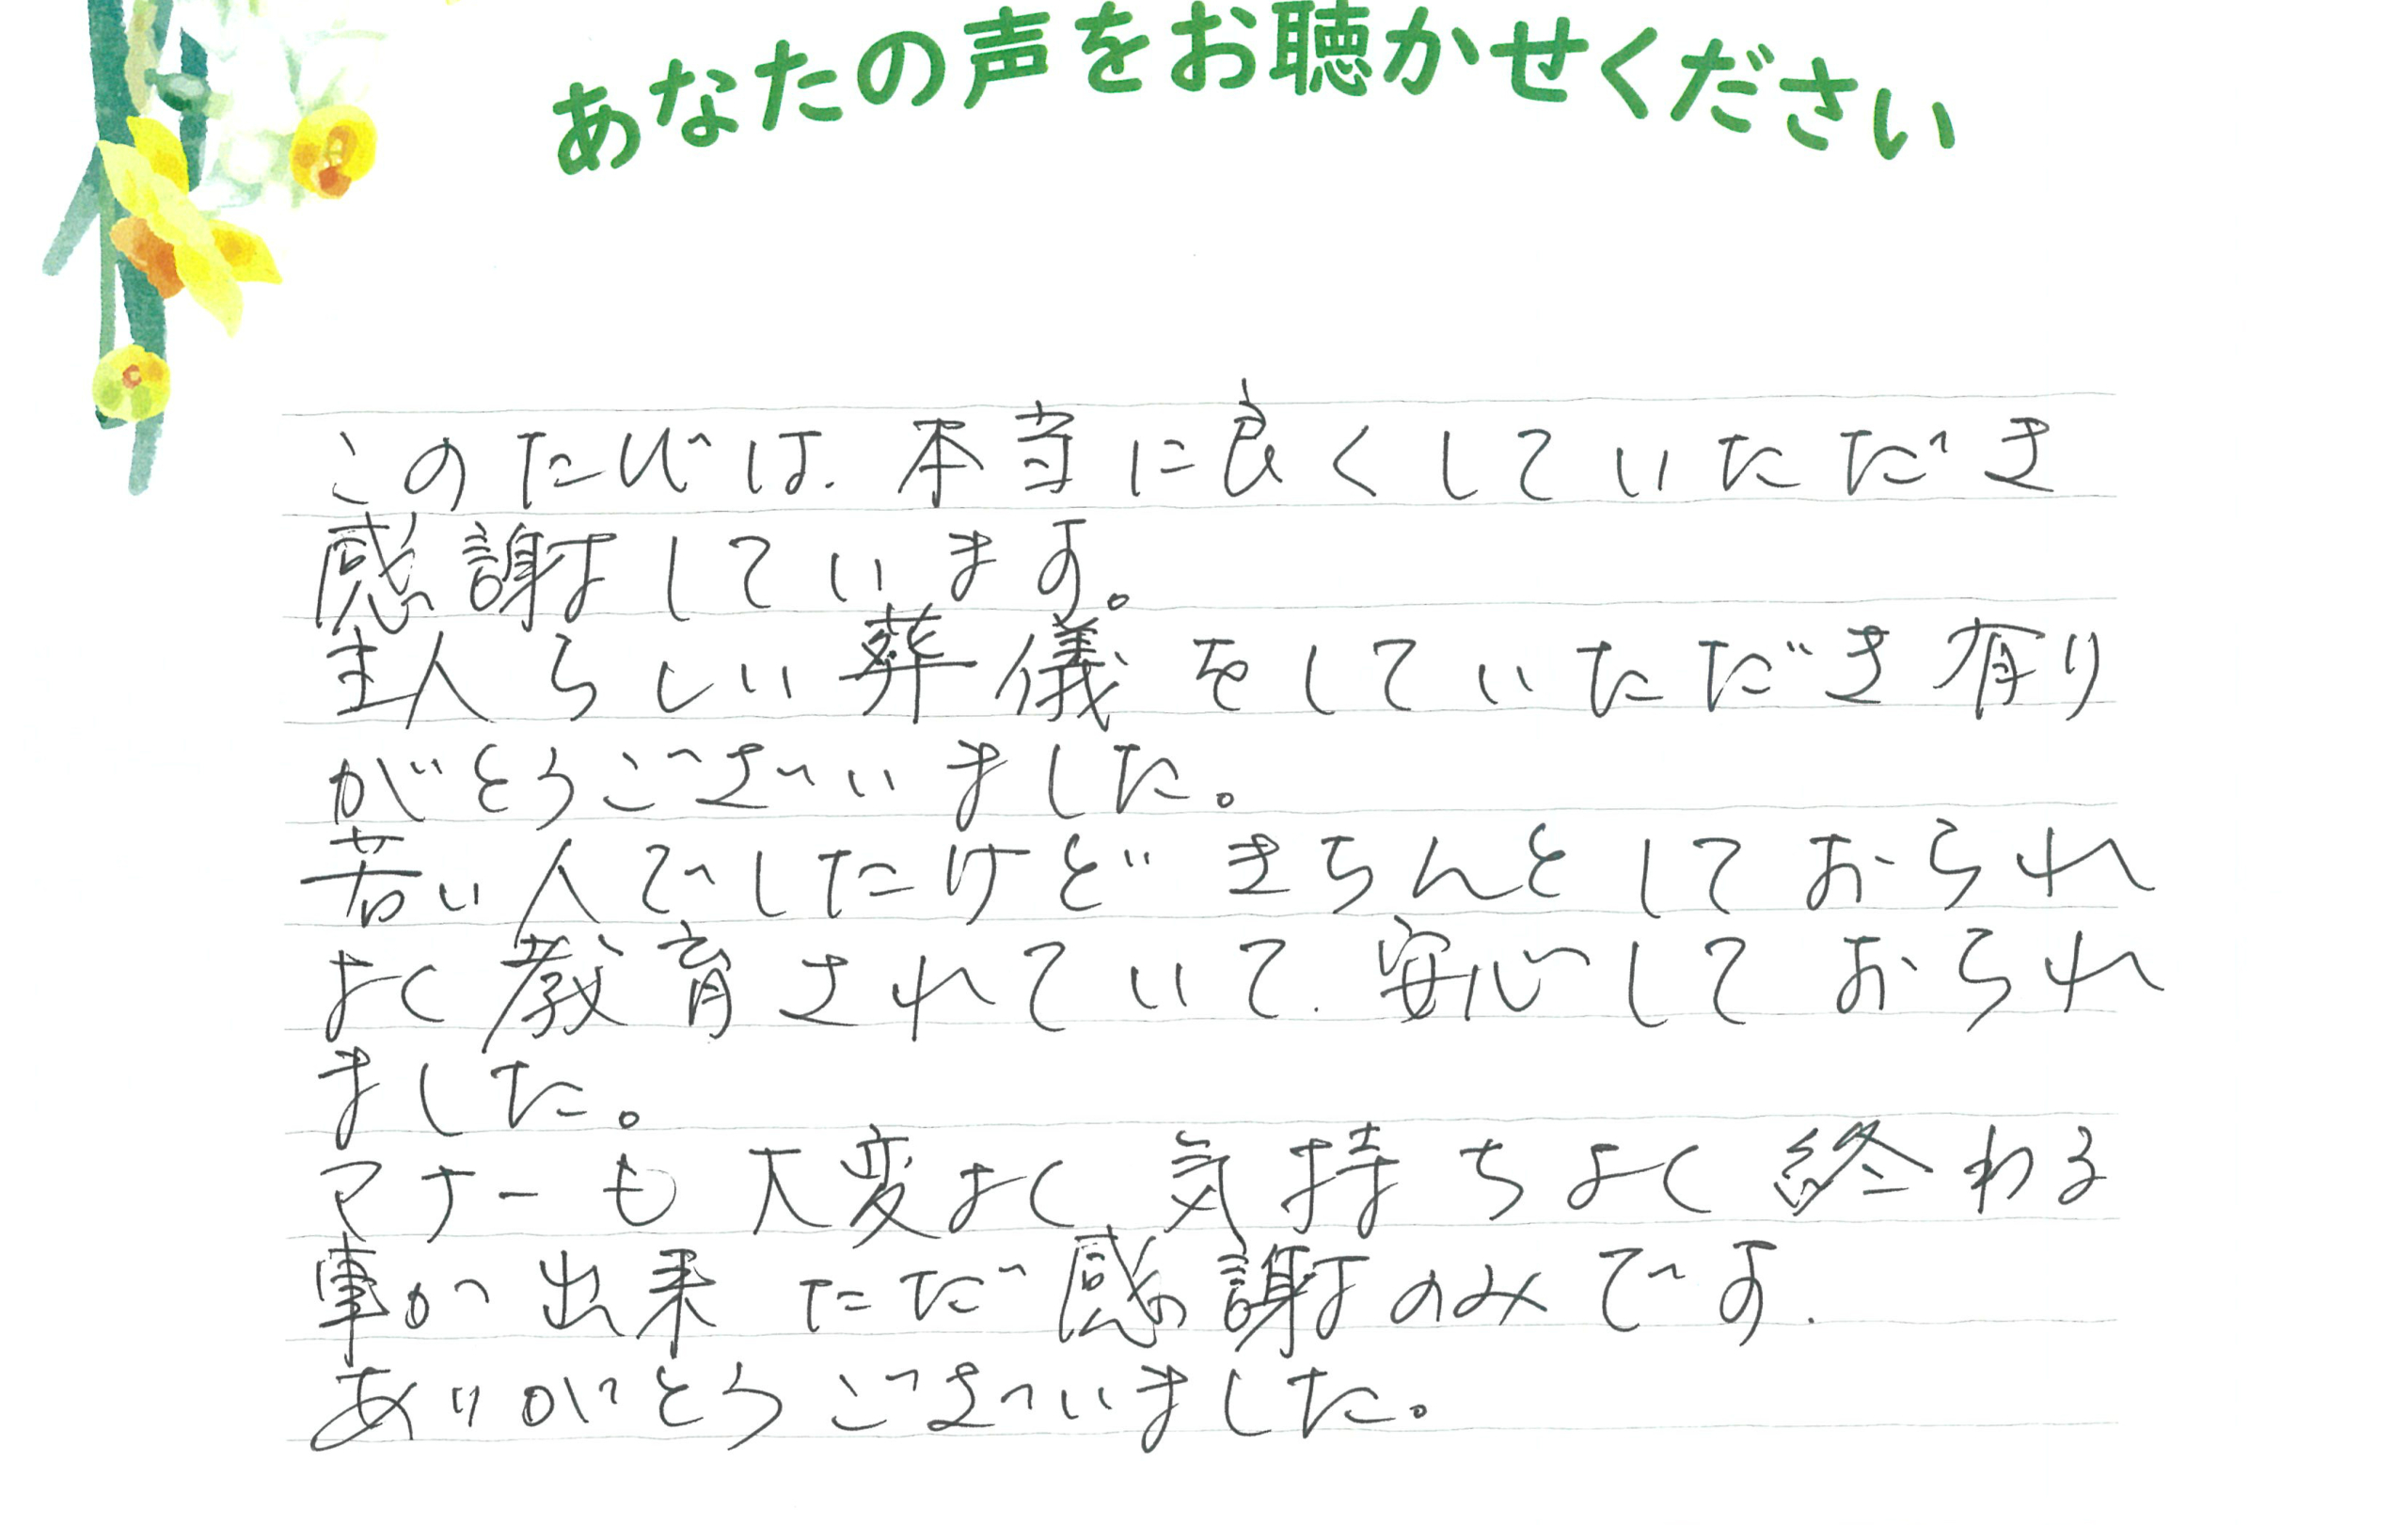 あなたの声をお聴かせください
このたびは、本当に良くしていただき
感謝しています。
主人らしい葬儀をしていただき有り
がとうございました。
若い人でしたけどきちんとしておられ
よく教育されていて、安心しておられ
ました。
マナーも大変よく気持ちよく終わる
事が出来ただ感謝のみです.
ありがとうございました。